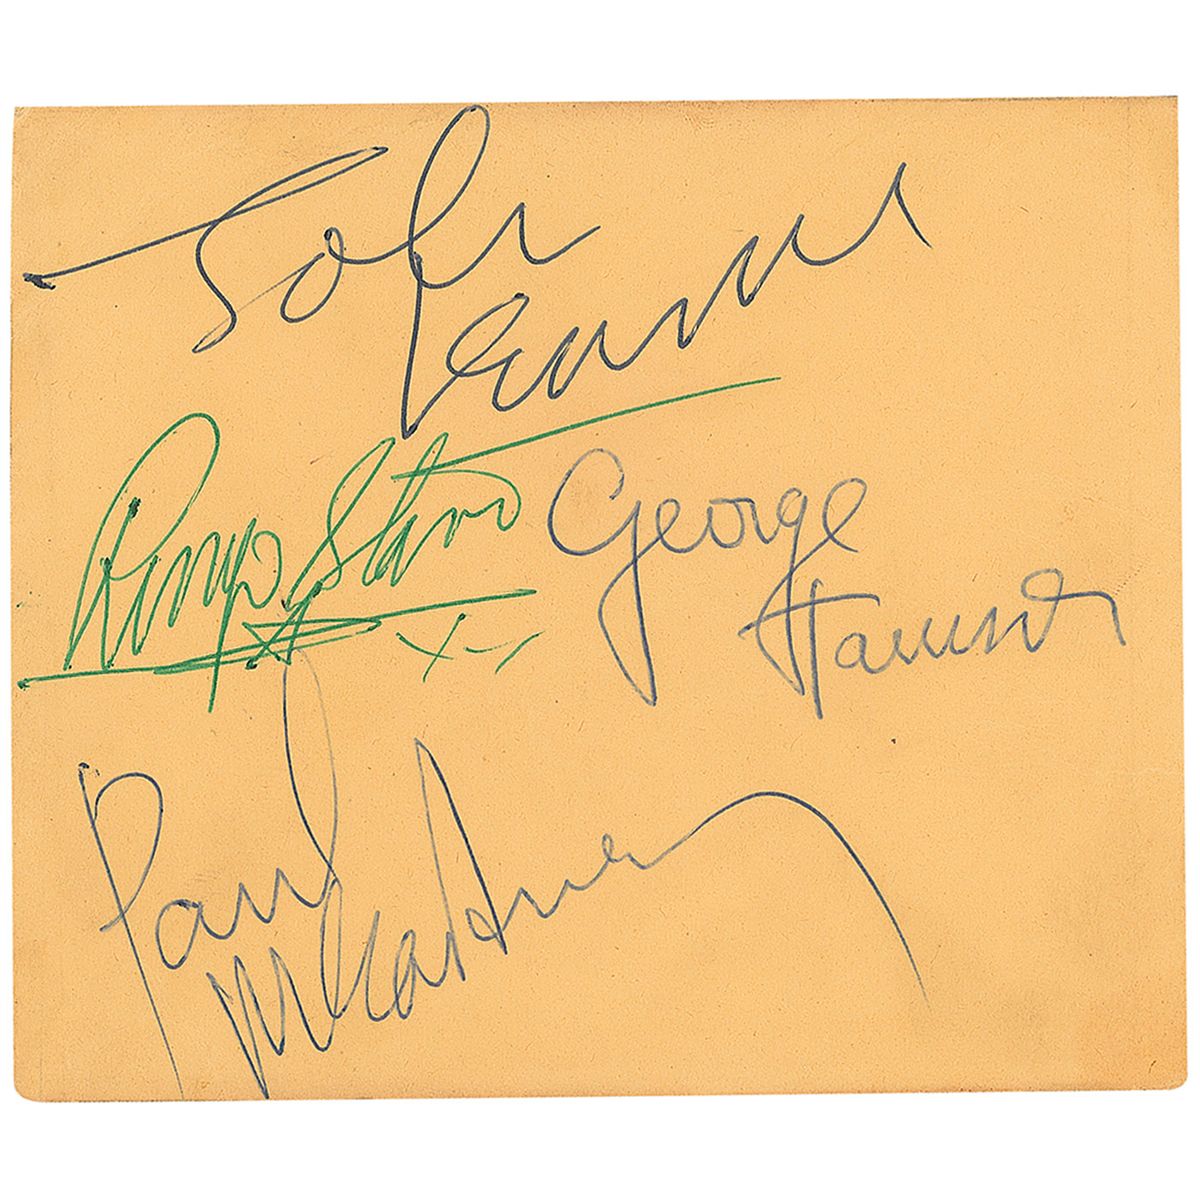 John
Lennon
Ringo Starr
George
Harrison
Paul
McCartney